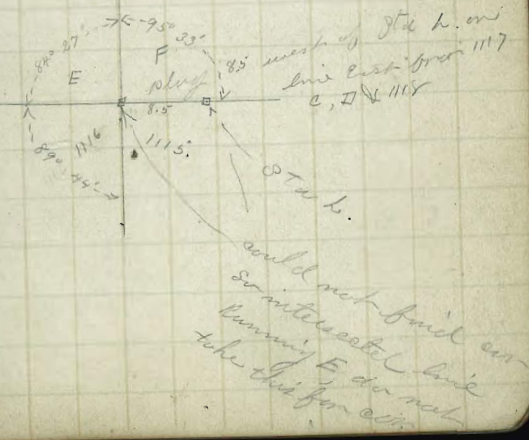 95°
84° 27'
E
F 33'
plug
85
west of Std L. on
line East from 1117
C, D 1118
8.5
89° 44'
1116
1115
Std L.
could not find cor
So intersected line
Running E, do not
take this for cor.